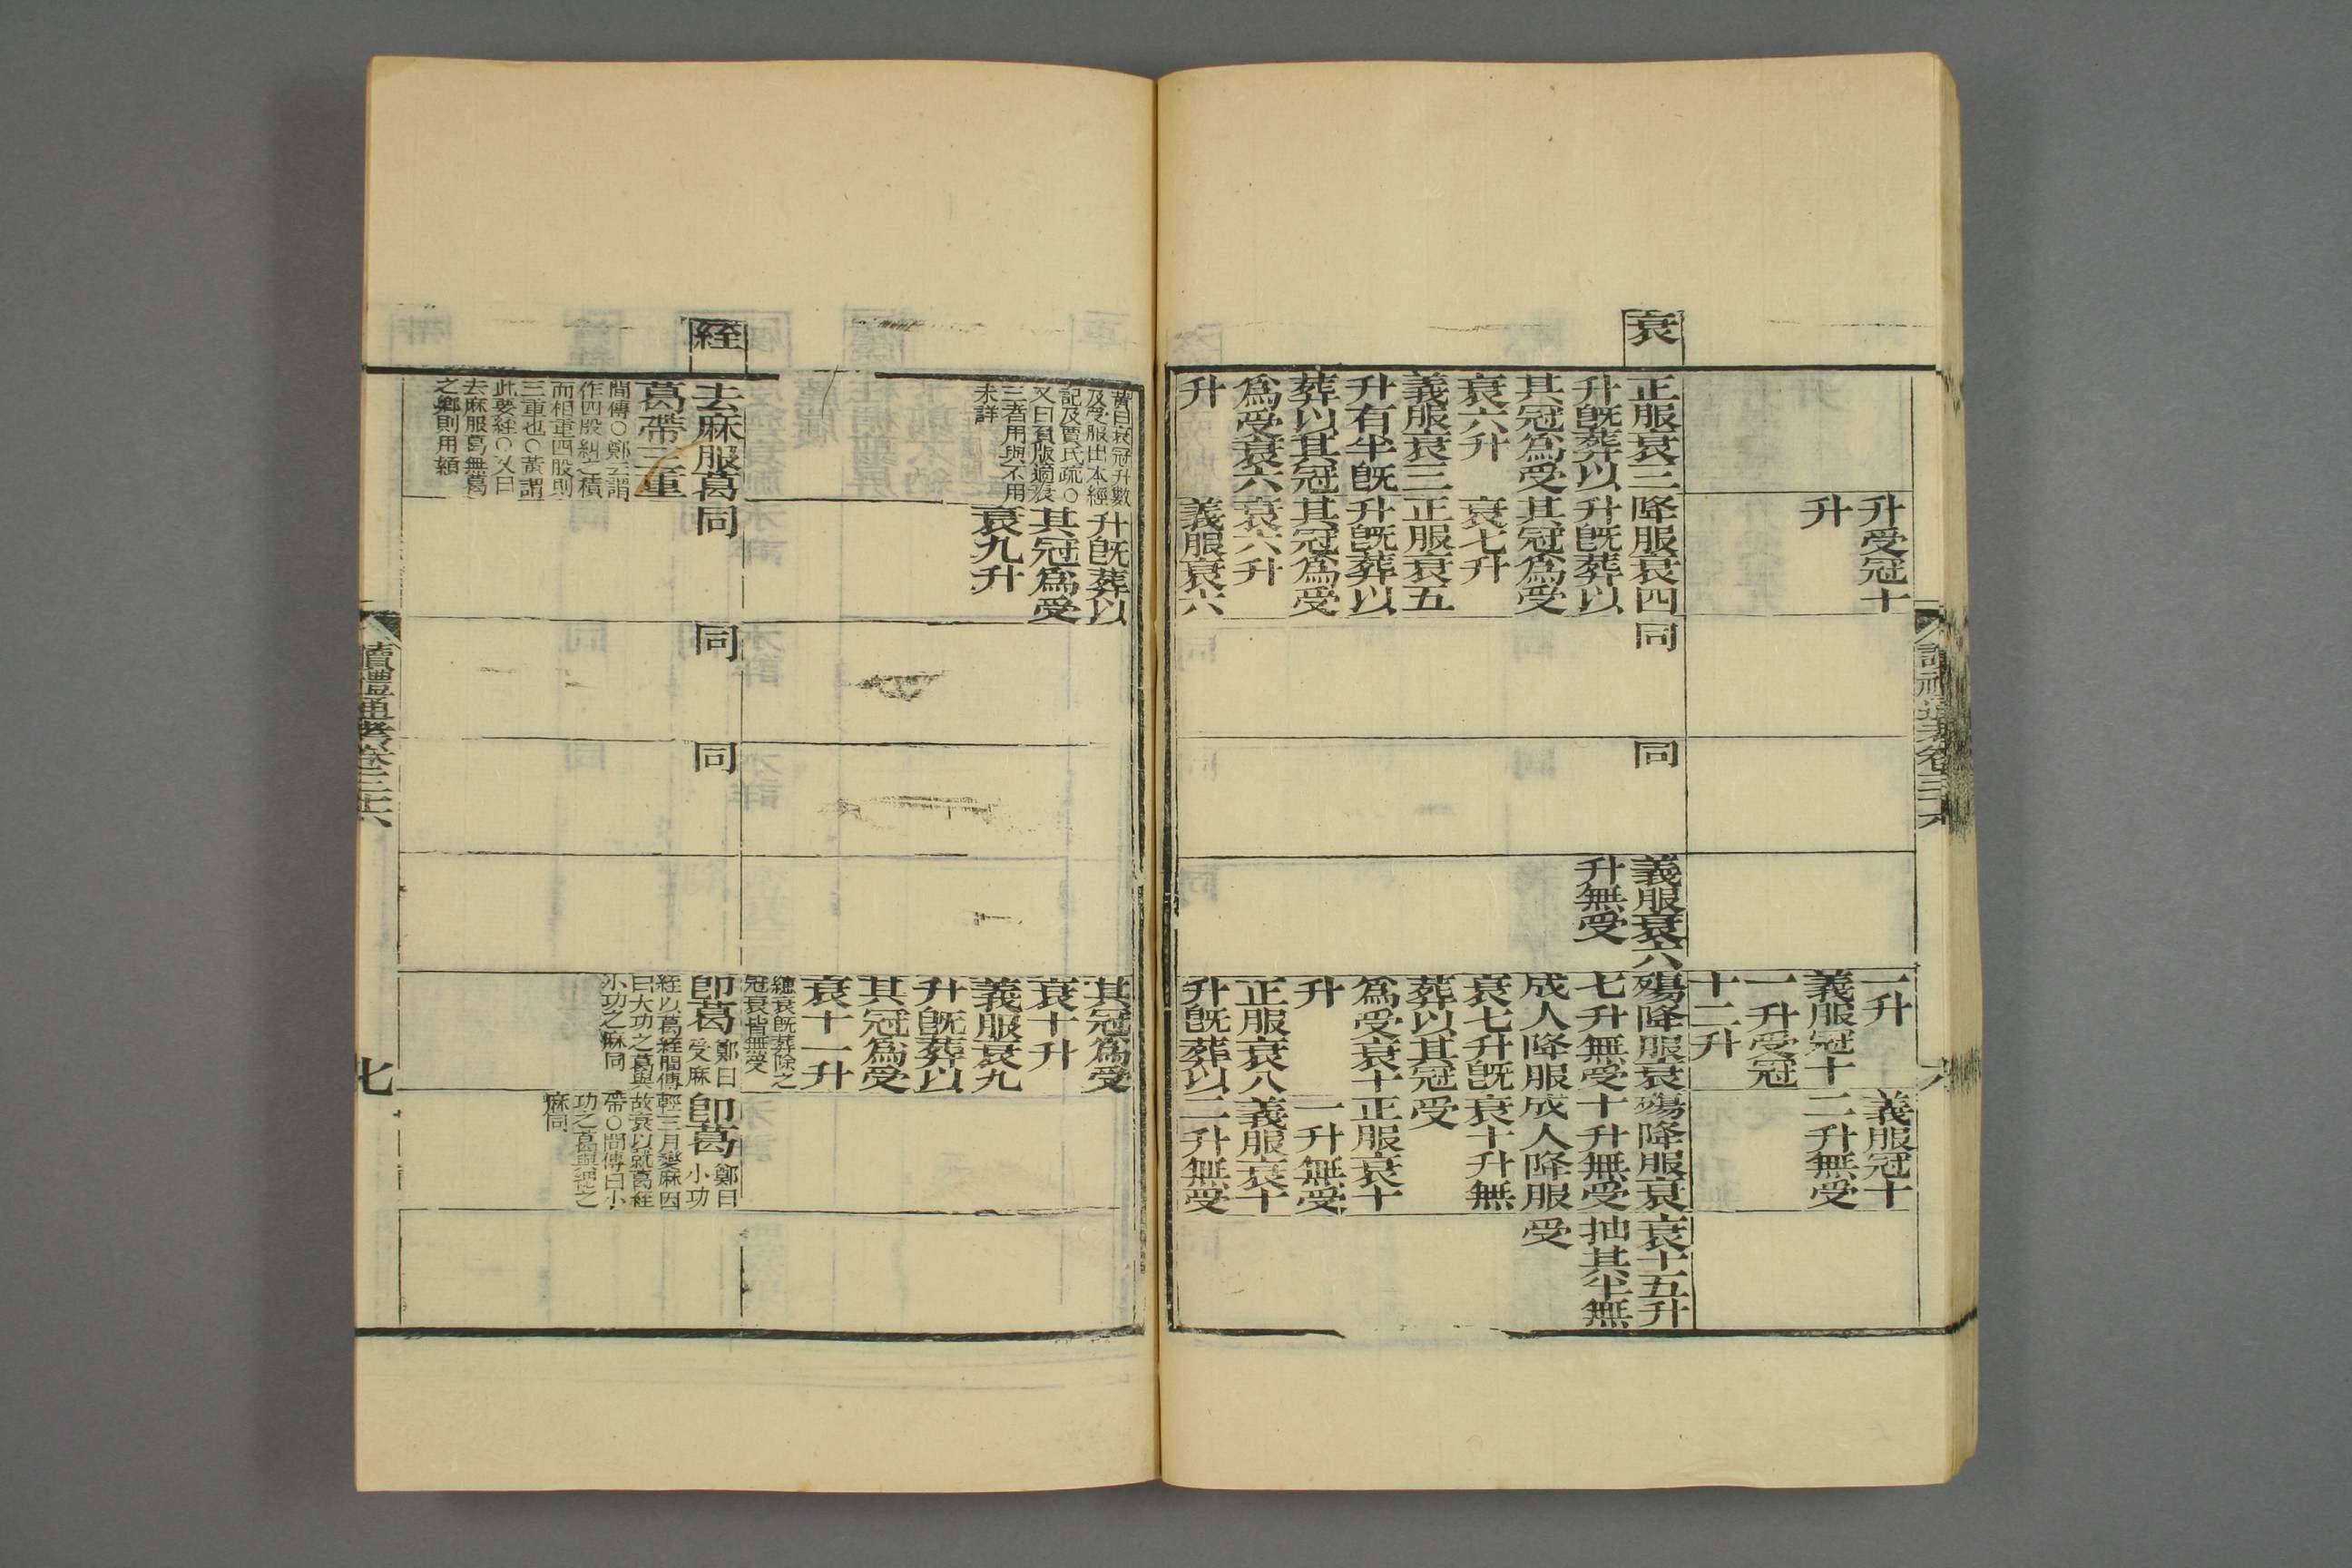 讀禮通考卷三十六
六
升受冠十
升
一升
義服冠十
一升受冠
十二升
義服冠十
二升無受
衰
正服衰三
升旣葬以
其冠爲受
衰六升
義服衰三
升有半旣
葬以其冠
爲受衰六
升
降服衰四
升旣葬以
其冠爲受
衰七升
正服衰五
升旣葬以
其冠爲受
衰六升
義服衰六
同
同
義服衰六
升無受
殤降服衰
七升無受
成人降服
衰七升旣
葬以其冠
爲受衰十
升
正服衰八
升旣葬以
殤降服衰
十升無受
成人降服
衰十升無
受
正服衰十
一升無受
義服衰十
二升無受
衰十五升
抽其半無
受
黃曰衰冠升數
及受服出本經
記及賈氏疏○
又曰負版適衰
三者用與不用
未詳
升旣葬以
其冠爲受
衰九升
其冠爲受
衰十升
義服衰九
升旣葬以
其冠爲受
衰十一升
繐衰旣葬除之
冠衰皆無受
絰
去麻服葛
葛帶三重
間傳○鄭云謂
作四股糾之積
而相重四股則
三重也○黃謂
此要絰○又曰
去麻服葛無葛
之鄉則用顈
同
同
同
卽葛鄭曰
受麻
絰以葛絰間傳
曰大功之葛與
小功之麻同
卽葛鄭曰
小功
輕三月變麻因
故衰以就葛絰
帶○間傳曰小
功之葛與緦之
麻同
讀禮通考卷三十六
七